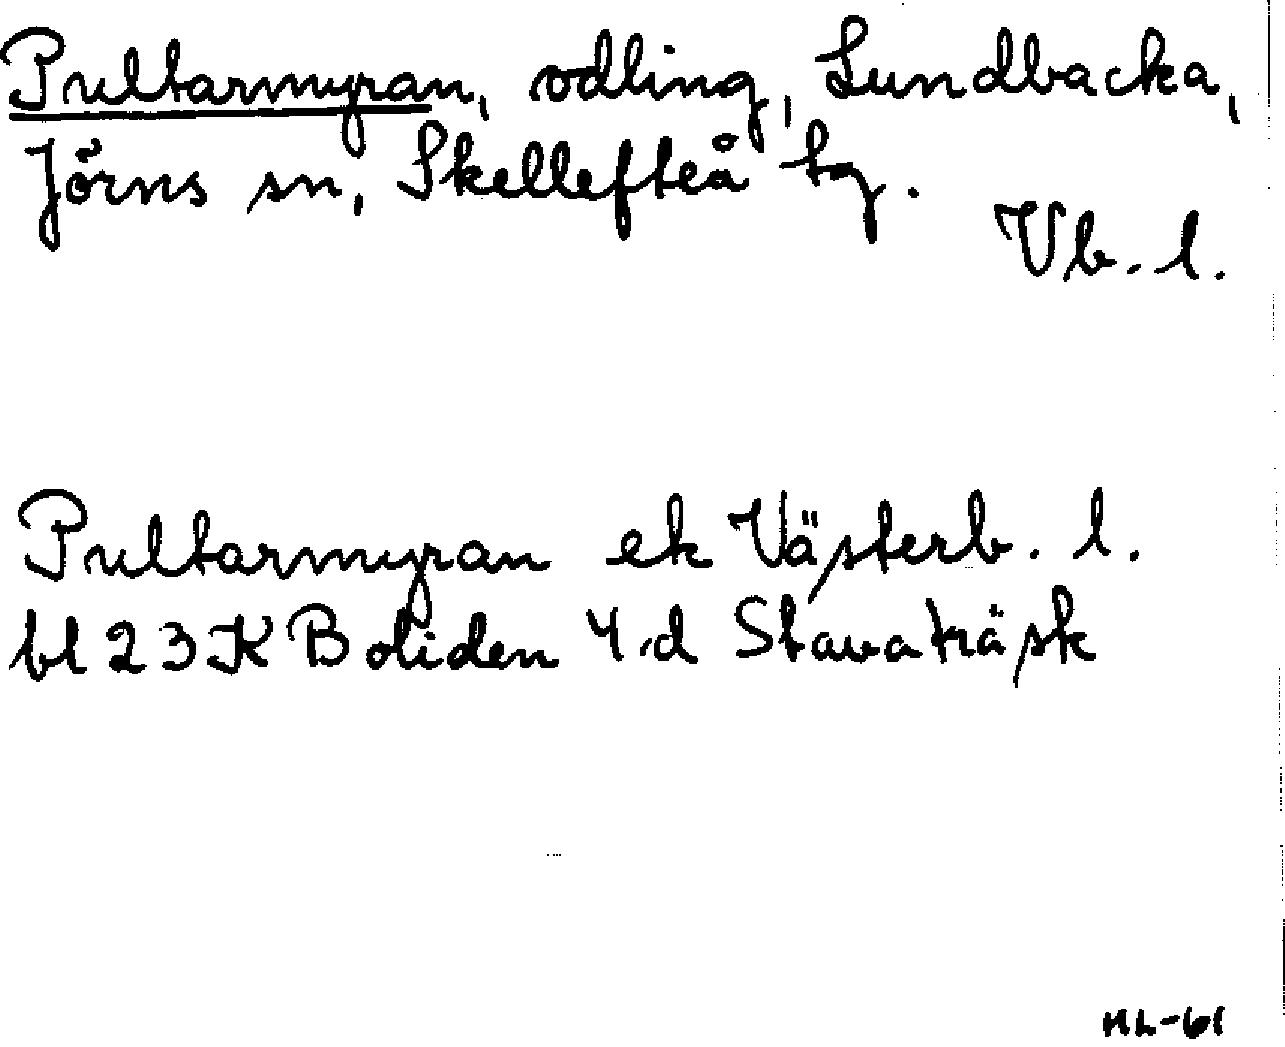 Pultarmyran, odling, Lundbacka,
Jörns sn, Skellefteå tg.
Vb. l.
Pultarmyran ek Västerb. l.
bl 23K Boliden 4 d Stavaträsk
HL-61